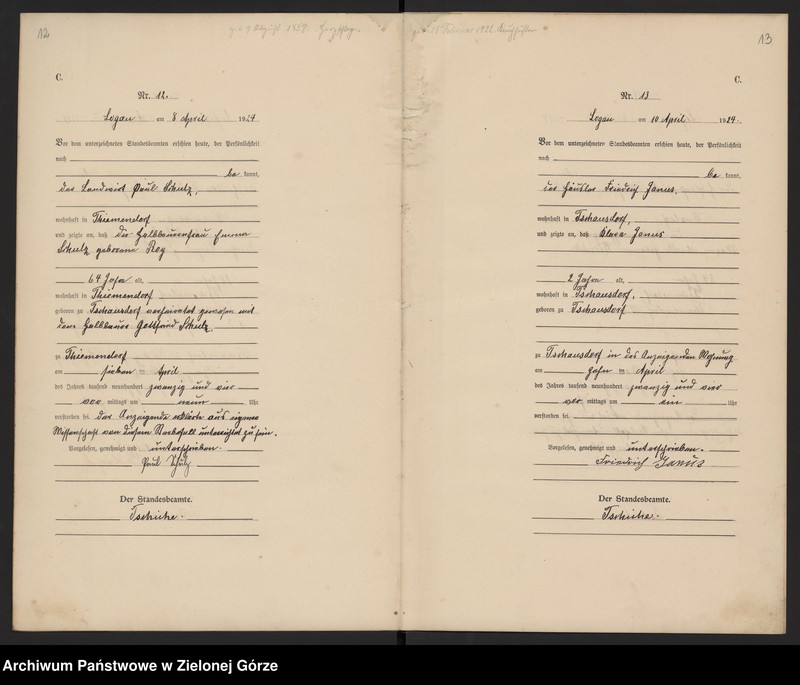 12
C.
Nr. 12.
Logau am 8 April 1924
Vor dem unterzeichneten Standesbeamten erschien heute, der Persönlichkeit
nach
be kannt,
der Landwirt Paul Schulz,
wohnhaft in Thiemendorf
und zeigte an, daß die Halbbauerfrau Emma
Schulz geborene
64 Jahre alt,
wohnhaft in Thiemendorf
geboren zu Tschausdorf verheiratet gewesen mit
dem Halbbauer Gottfried Schulz
zu Thiemendorf
am sieben ten April
des Jahres tausend neunhundert zwanzig und vier
vor mittags um neun Uhr
verstorben sei. Der Anzeigende erklärte aus eigener
Wissenschaft von diesem Sterbefall unterrichtet zu sein.
Vorgelesen, genehmigt und unterschrieben.
Paul Schulz
Der Standesbeamte.
Tschirke.
13
C.
Nr. 13
Logau am 10 April 1924.
Vor dem unterzeichneten Standesbeamten erschien heute, der Persönlichkeit
nach
be kannt,
der Häusler Friedrich Janus,
wohnhaft in Tschausdorf,
und zeigte an, daß Klara Janus
2 Jahre alt,
wohnhaft in Tschausdorf,
geboren zu Tschausdorf
zu Tschausdorf in des Anzeigenden Wohnung
am zehn ten April
des Jahres tausend neunhundert zwanzig und vier
vor mittags um ein Uhr
verstorben sei.
Vorgelesen, genehmigt und unterschrieben.
Friedrich Janus
Der Standesbeamte.
Tschirke.
Archiwum Państwowe w Zielonej Górze